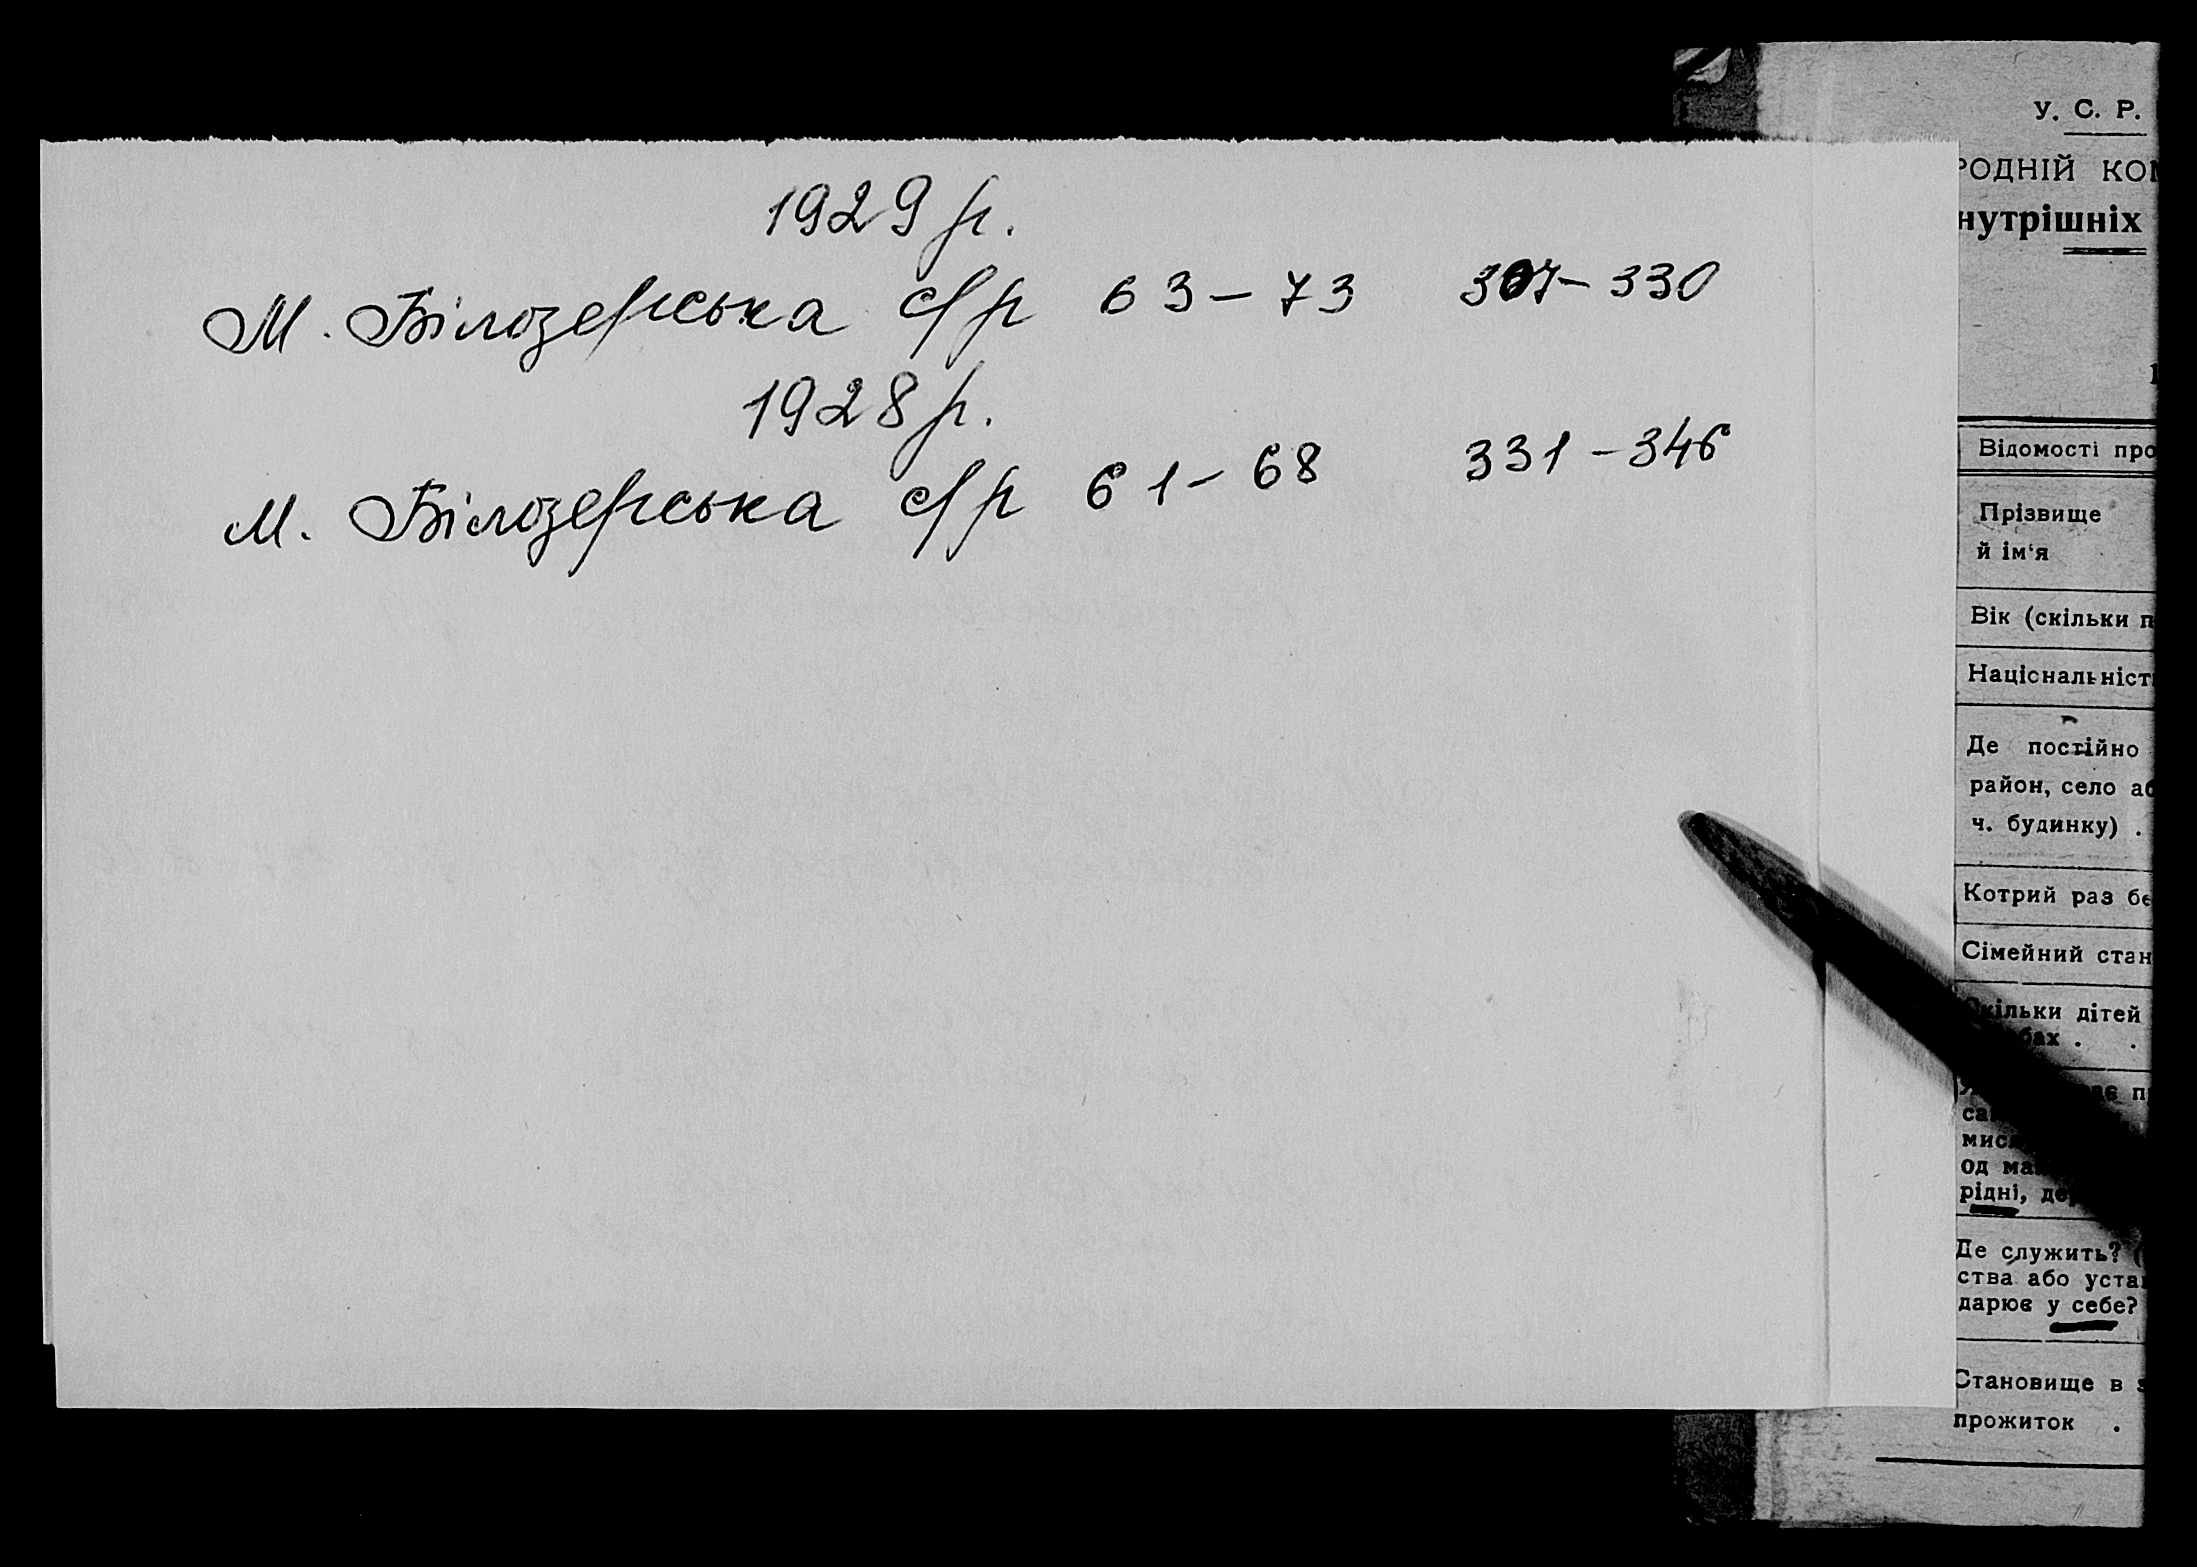 1929 р.
М. Білозерська с/р 63-73 307-330
1928 р.
М. Білозерська с/р 61-68 331-346
У. С. Р.
РОДНІЙ КОМ
нутрішніх
Відомості про
Прізвище
й ім'я
Вік (скільки п
Національність
Де постійно
район, село аб
ч. будинку) .
Котрий раз бе
Сімейний стан
кільки дітей
бах . .
ає п
са
мис
од ма
рідні, де
Де служить? (
ства або уста
дарює у себе?
Становище в з
прожиток .